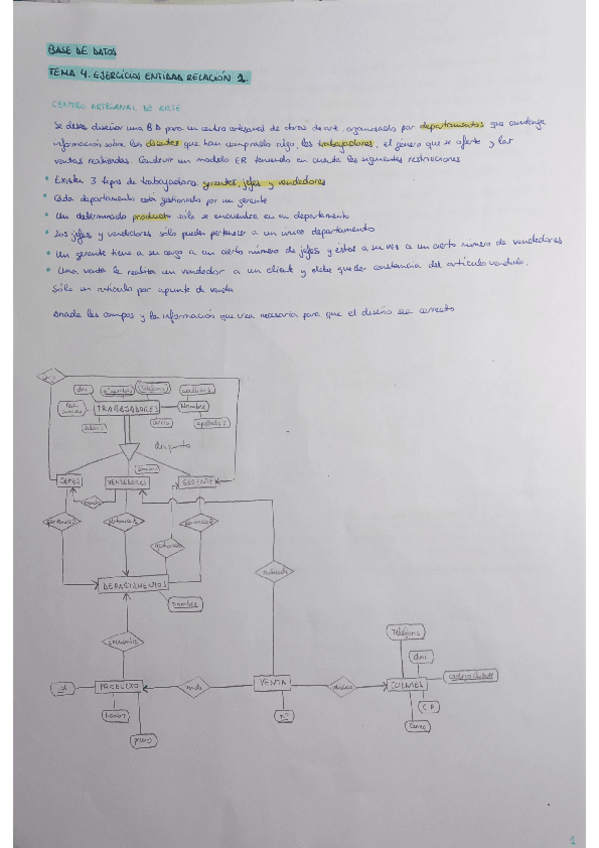 BASE DE DATOS
TEMA 4. EJERCICIOS ENTIDAD RELACIÓN 1.
CENTRO ARTESANAL DE ARTE
Se desea diseñar una BD para un centro artesanal de obras de arte, organizado por departamentos que contenga
información sobre los clientes que han comprado algo, los trabajadores, el género que se oferta y las
ventas realizadas. Construir un modelo ER teniendo en cuenta las siguientes restricciones
• Existen 3 tipos de trabajadores: gerentes, jefes y vendedores
• Cada departamento está gestionado por un gerente
• Un determinado producto sólo se encuentra en un departamento
• Los jefes y vendedores sólo pueden pertenecer a un único departamento
• Un gerente tiene a su cargo a un cierto número de jefes y éstos a su vez a un cierto número de vendedores
• Una venta la realiza un vendedor a un client y debe quedar constancia del artículo vendido.
Sólo un artículo por apunte de venta
Añade los campos y la información que sea necesaria para que el diseño sea correcto
dni
TRABAJADORES
Nombre
apellido 2
salario
disjunto
JEFES
VENDEDORES
GERENTE
pertenece
DEPARTAMENTOS
nombre
realizada
Teléfono
dni
id
PRODUCTO
VENTA
CLIENTES
codigo cliente
nº
C.P
Correo
1